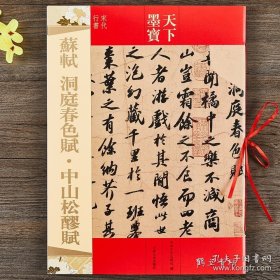 天下
墨寶
宋代
行書
蘇軾 洞庭春色賦·中山松醪賦
洞庭春色賦
吾聞橘中之樂不減商
山豈霜餘之不食而四老
人者游戲於其間悟此世
之泡幻藏千里於一班舉
棗葉之有餘納芥子其
孔夫子旧书网